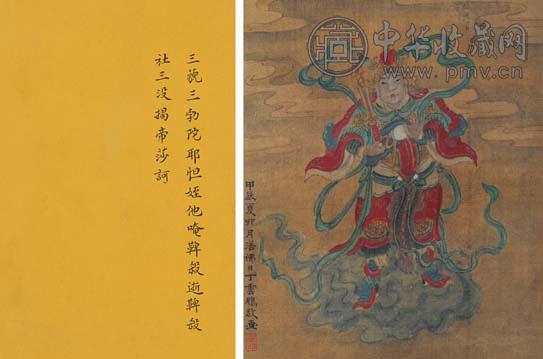 中华收藏网
www.pmv.cn
三藐三勃陀耶怛姪他唵鞞殺逝鞞殺
社三没揭帝莎訶
甲辰夏月浴佛日丁雲鵬敬畫